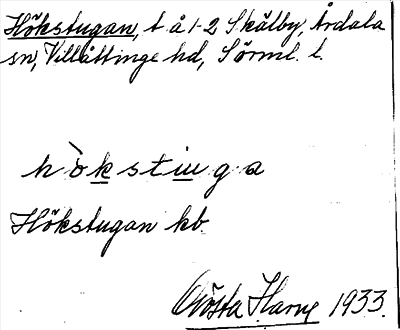 Hökstugan, t å 1-2 Skälby, Årdala
sn, Villåttinge hd, Sörml. l.
hö̀kstuga
Hökstugan kb
Gösta Harne 1933.